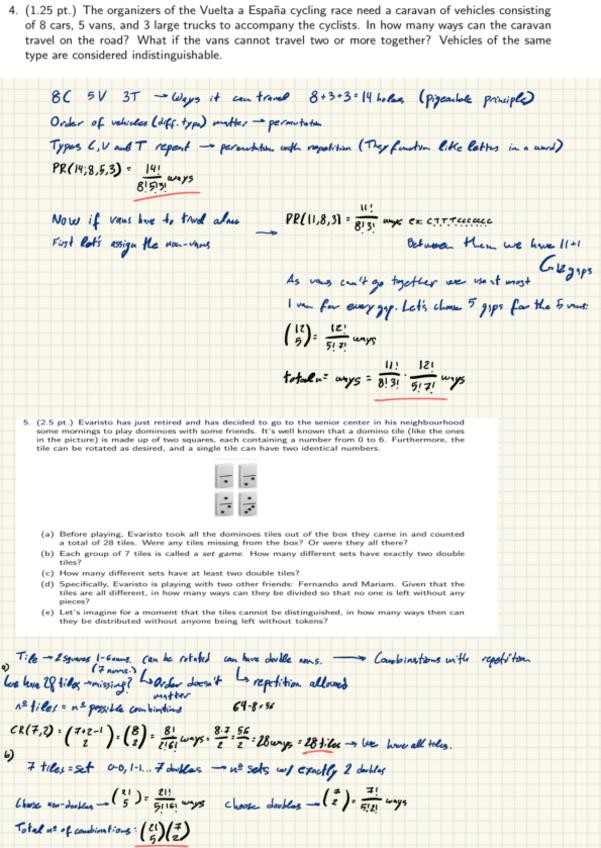 4. (1.25 pt.) The organizers of the Vuelta a España cycling race need a caravan of vehicles consisting
of 8 cars, 5 vans, and 3 large trucks to accompany the cyclists. In how many ways can the caravan
travel on the road? What if the vans cannot travel two or more together? Vehicles of the same
type are considered indistinguishable.
8C 5V 3T → Ways it can travel 8+3+3=14 holes (pigeonhole principle)
Order of vehicles (diff. type) matter → permutation
Types C, V and T repeat → permutation with repetition (They function like letters in a word)
PR(14;8,5,3) = 14! / 8!5!3! ways
Now if vans have to travel alone
First let's assign the non-vans
→ PR(11,8,3) = 11! / 8!3! ways ex: CTTTCCCCCCC
Between them we have 11+1
12 gaps
As vans can't go together we use at most
1 van for every gap. Let's choose 5 gaps for the 5 vans:
(12 5) = 12! / 5!7! ways
total nº ways = 11! / 8!3! · 12! / 5!7! ways
5. (2.5 pt.) Evaristo has just retired and has decided to go to the senior center in his neighbourhood
some mornings to play dominoes with some friends. It's well known that a domino tile (like the ones
in the picture) is made up of two squares, each containing a number from 0 to 6. Furthermore, the
tile can be rotated as desired, and a single tile can have two identical numbers.
(a) Before playing, Evaristo took all the dominoes tiles out of the box they came in and counted
a total of 28 tiles. Were any tiles missing from the box? Or were they all there?
(b) Each group of 7 tiles is called a set game. How many different sets have exactly two double
tiles?
(c) How many different sets have at least two double tiles?
(d) Specifically, Evaristo is playing with two other friends: Fernando and Mariam. Given that the
tiles are all different, in how many ways can they be divided so that no one is left without any
pieces?
(e) Let's imagine for a moment that the tiles cannot be distinguished, in how many ways then can
they be distributed without anyone being left without tokens?
Tile → 2 squares can be rotated can have double nums. → Combinations with repetition
(7 nums.)
a)
We have 28 tiles → missing? ↳ Order doesn't matter ↳ repetition allowed
nº tiles = nº possible combinations 64-8=56
CR(7,2) = (7+2-1 2) = (8 2) = 8! / 2!6! ways = 8·7 / 2 = 56 / 2 = 28 ways = 28 tiles → We have all tiles.
b)
7 tiles = set 0-0, 1-1... 7 doubles → nº sets w/ exactly 2 doubles
Choose non-doubles → (21 5) = 21! / 5!16! ways choose doubles → (7 2) = 7! / 5!2! ways
Total nº of combinations: (21 5)(7 2)